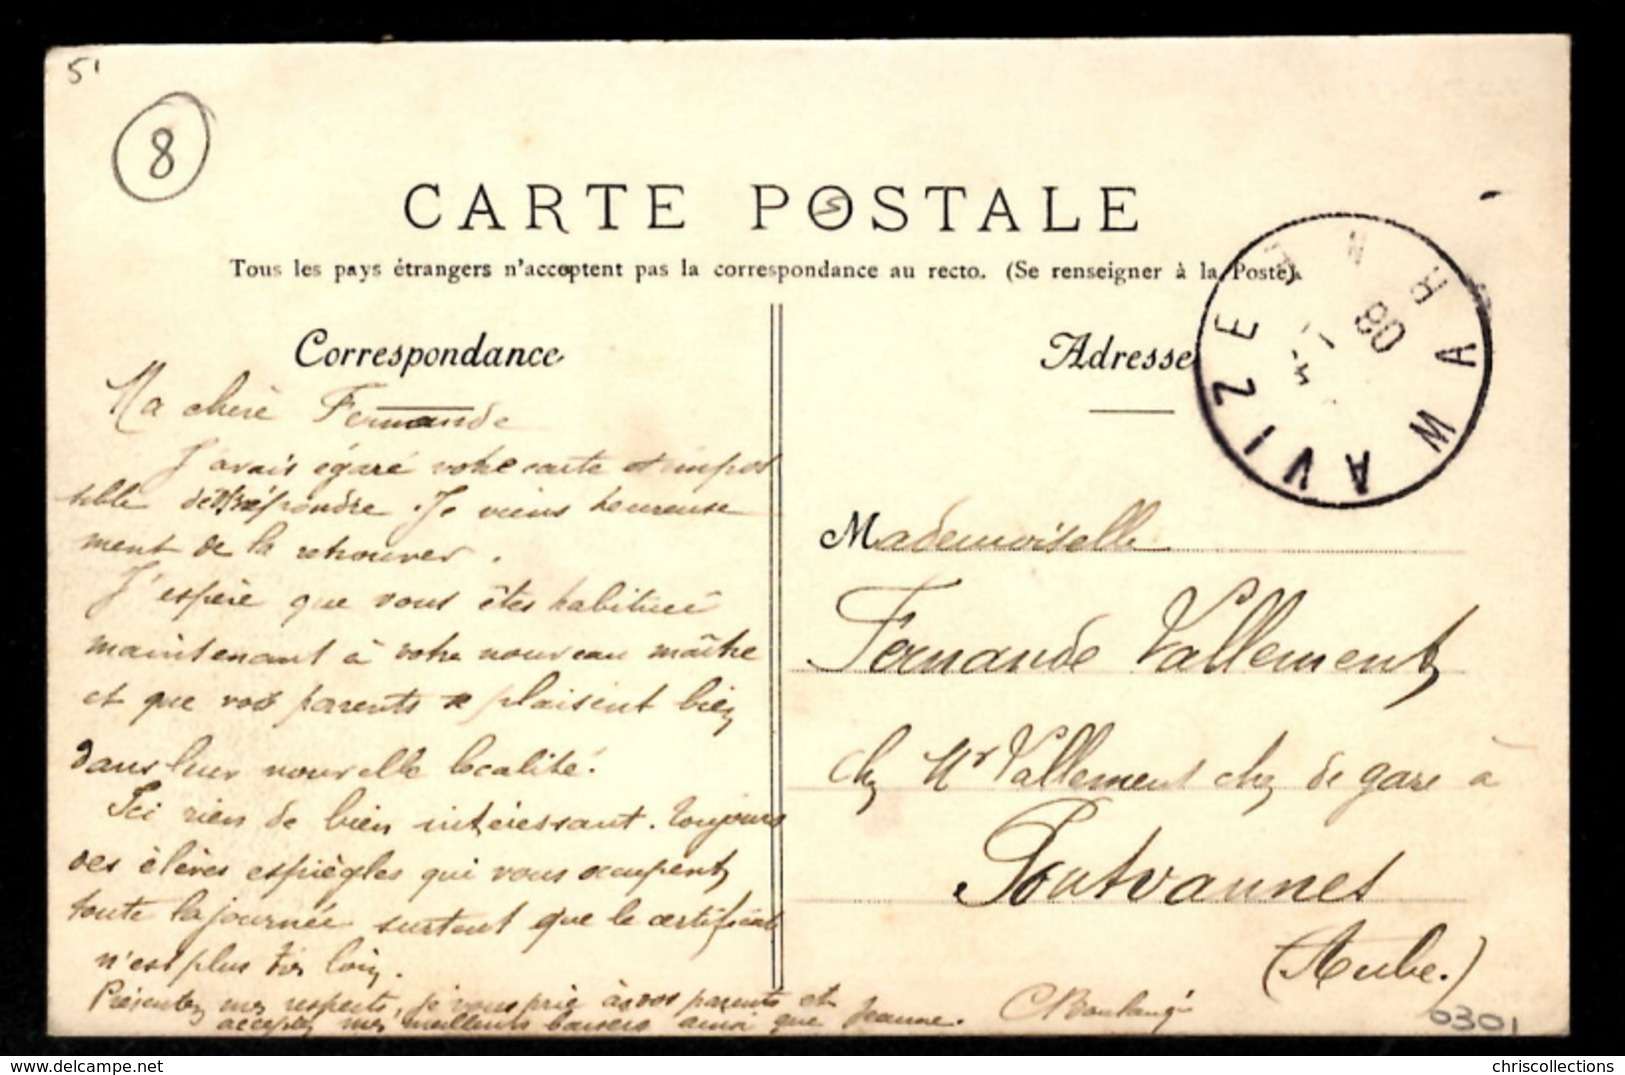 51
8
CARTE POSTALE
Tous les pays étrangers n'acceptent pas la correspondance au recto. (Se renseigner à la Poste).
Correspondance
Ma chère Fernande
J'avais égaré votre carte et impos
sible de répondre. Je viens heureuse
ment de la retrouver.
J'espère que vous êtes habituée
maintenant à votre nouveau maître
et que vos parents se plaisent bien
dans leur nouvelle localité.
Ici rien de bien intéressant. Toujours
des élèves espiègles qui vous occupent
toute la journée surtout que le certificat
n'est plus très loin.
Présentez mes respects, je vous prie à vos parents et
acceptez mes meilleurs baisers ainsi que Jeanne. C Boulangé
Adresse
AVIZE
MARNE
08
Mademoiselle
Fernande Vallement
chez Mr Vallement chez de gare à
Pontvannes
(Aube.)
0301
chriscollections